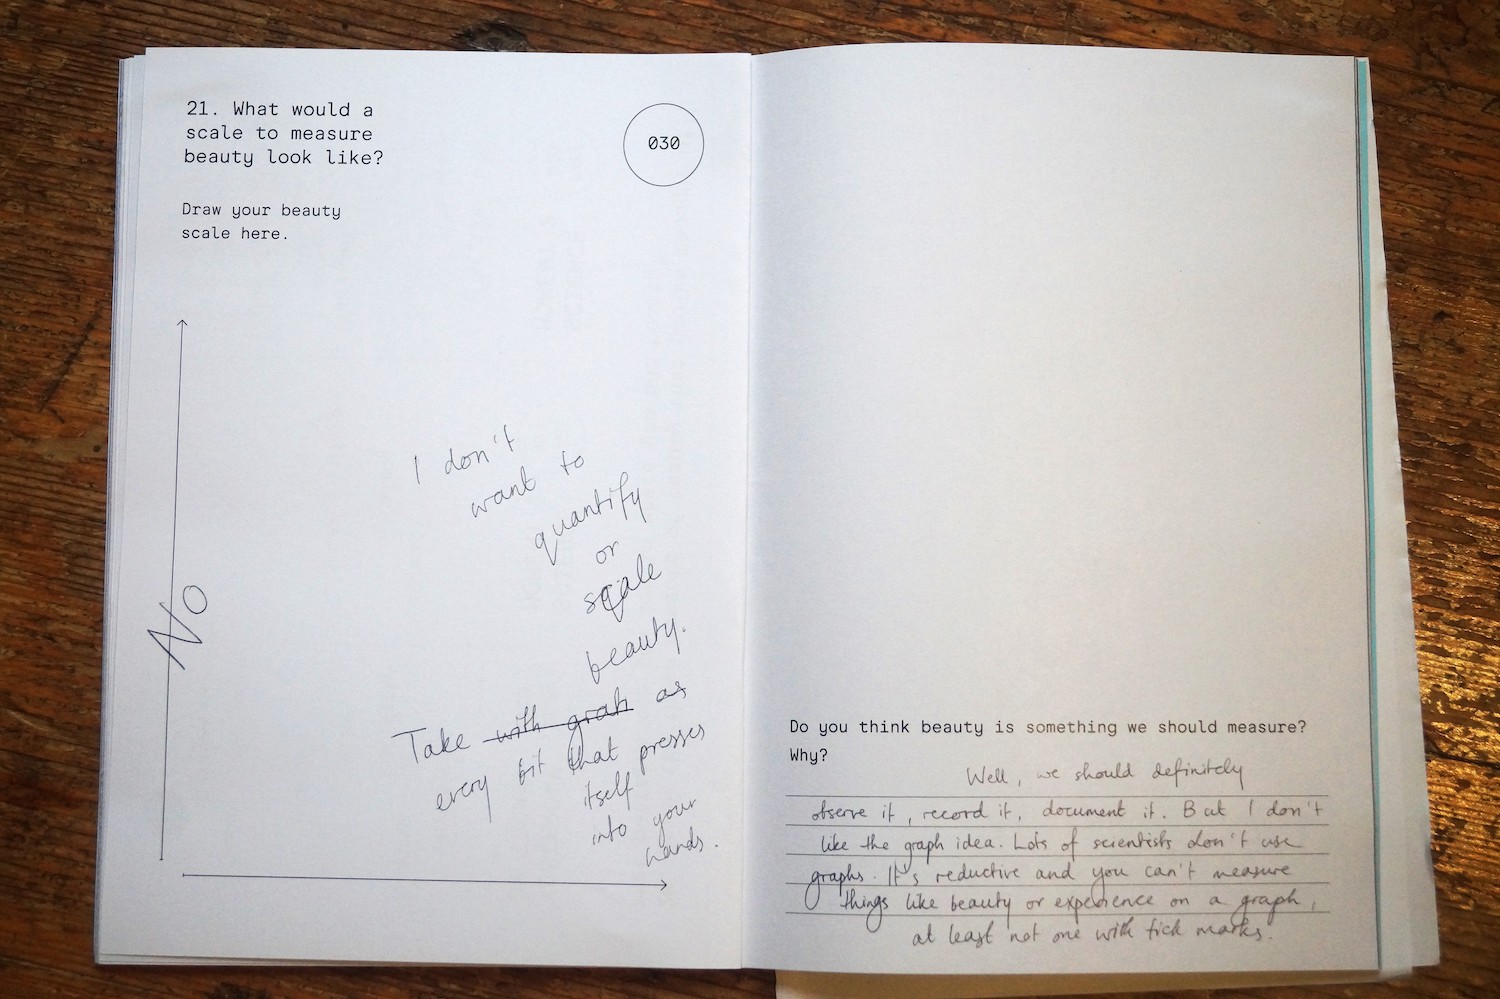 21. What would a
scale to measure
beauty look like?
030
Draw your beauty
scale here.
No
I don't
want to
quantify
or
scale
beauty.
Take with grah as
every bit that presses
itself
into your
hands.
Do you think beauty is something we should measure?
Why?
Well, we should definitely
observe it, record it, document it. But I don't
like the graph idea. Lots of scientists don't use
graphs. It's reductive and you can't measure
things like beauty or experience on a graph,
at least not one with tick marks.